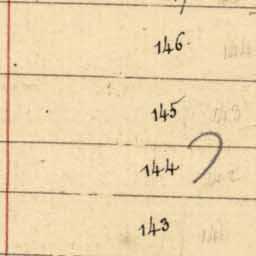 146.
145
144
143